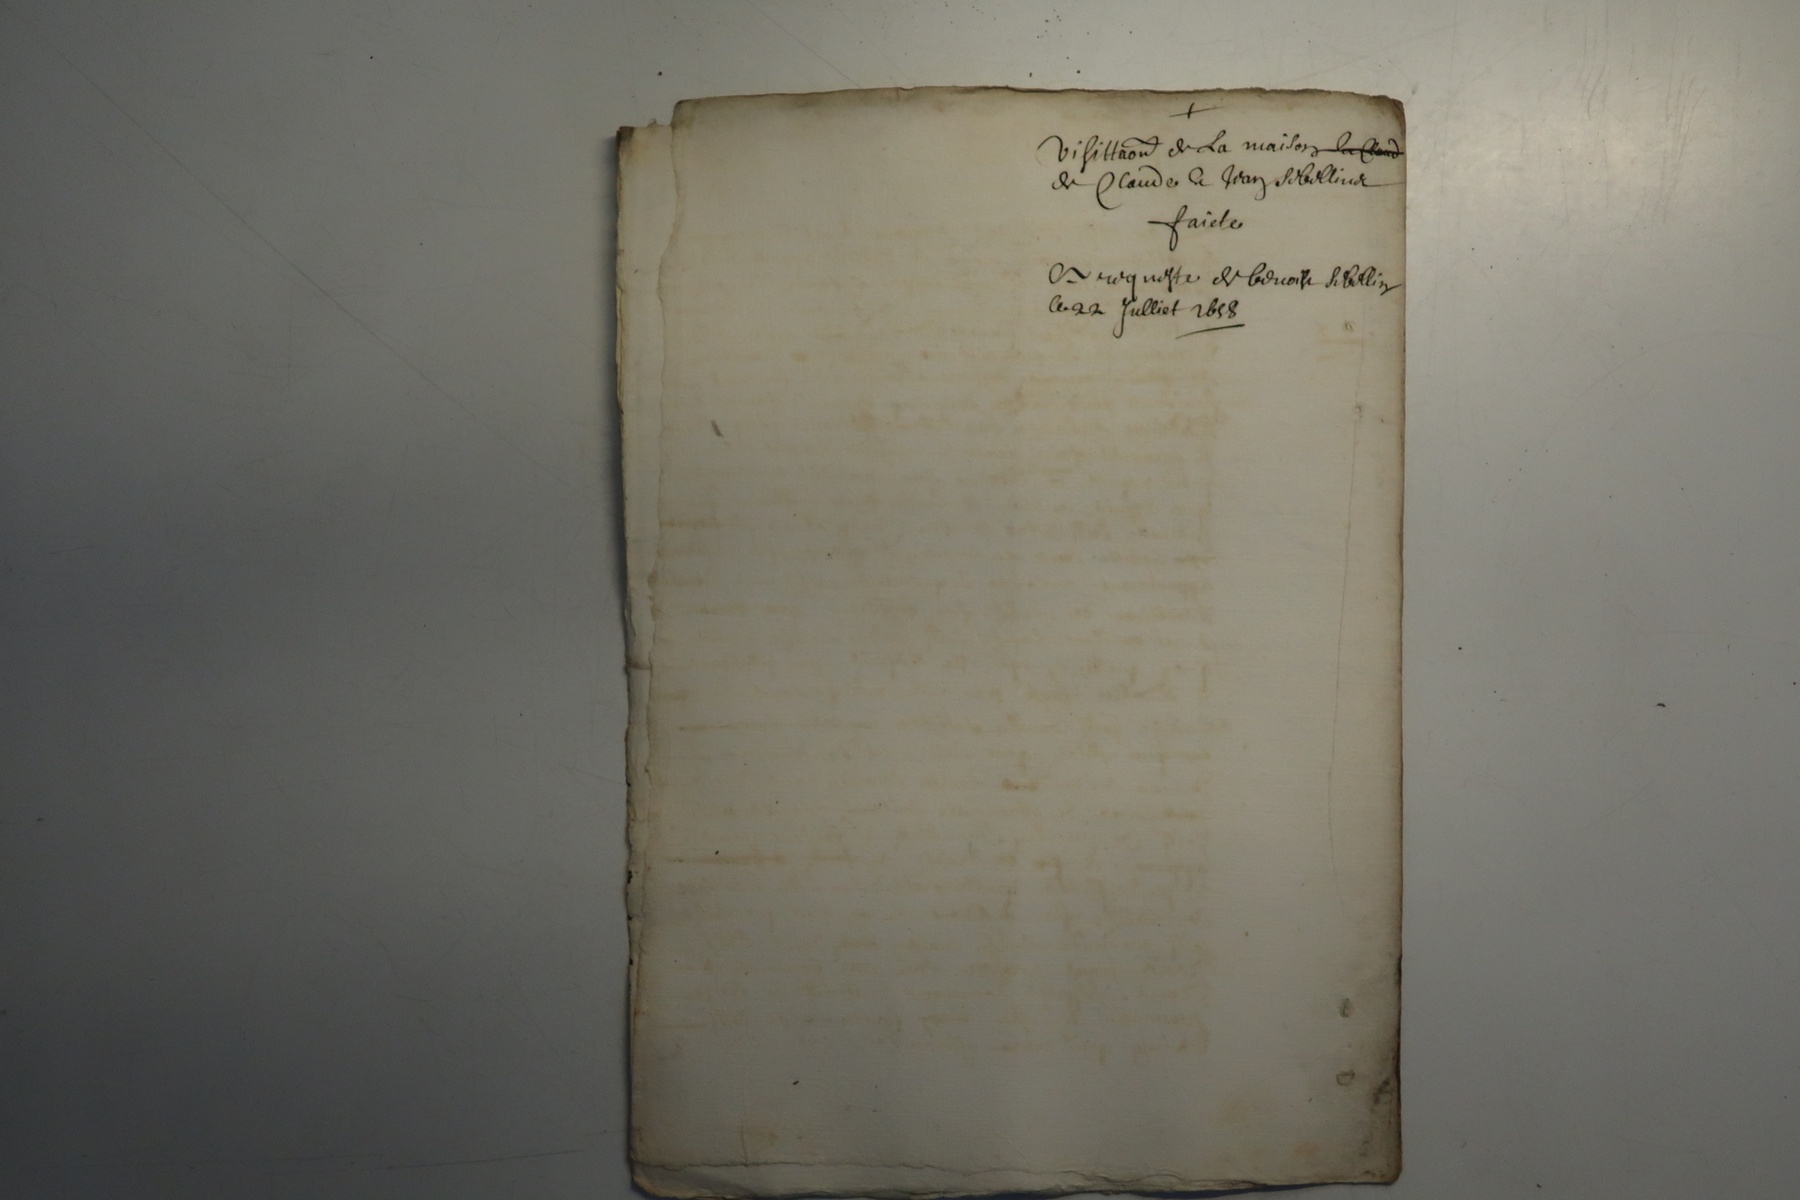 +
Visittaon de La maison de Claud
de Claude & Jean Sibellinde
faicte
A requeste de benoist Sibellin
le 22 Julliet 1658